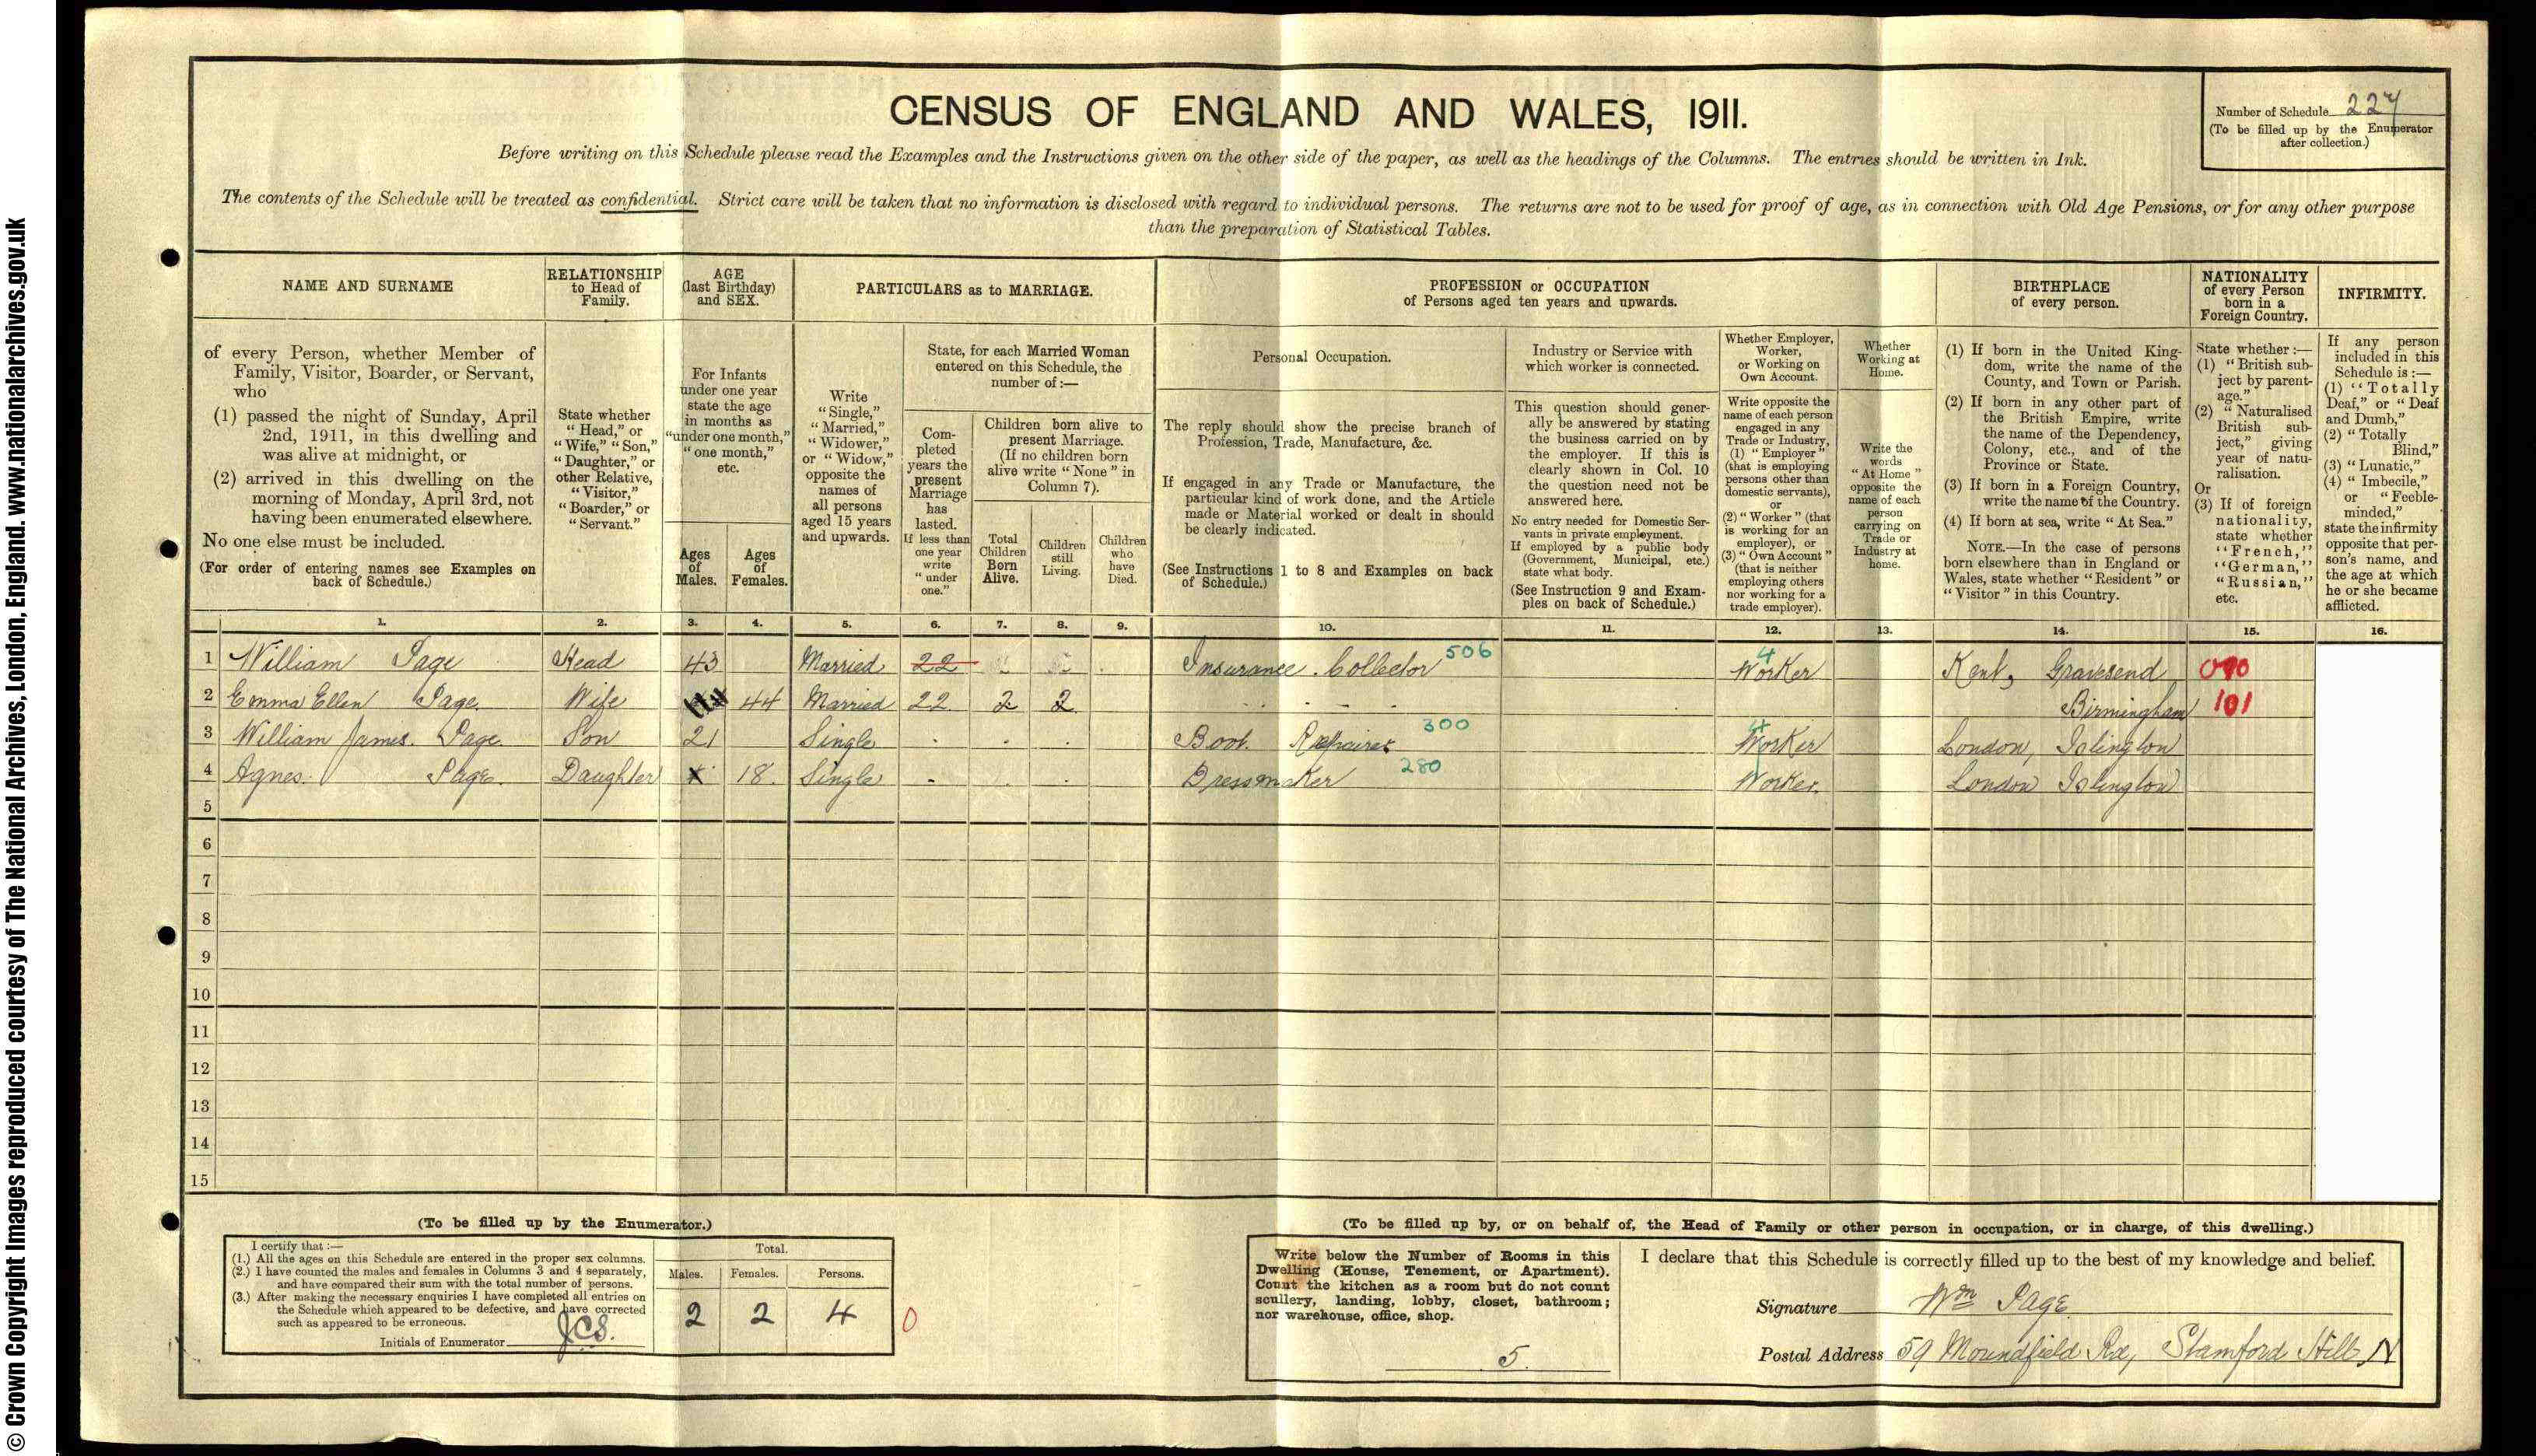 © Crown Copyright Images reproduced courtesy of The National Archives, London, England. www.nationalarchives.gov.uk
CENSUS OF ENGLAND AND WALES, 1911.
Number of Schedule 227
(To be filled up by the Enumerator
after collection.)
Before writing on this Schedule please read the Examples and the Instructions given on the other side of the paper, as well as the headings of the Columns. The entries should be written in Ink.
The contents of the Schedule will be treated as confidential. Strict care will be taken that no information is disclosed with regard to individual persons. The returns are not to be used for proof of age, as in connection with Old Age Pensions, or for any other purpose
than the preparation of Statistical Tables.
NAME AND SURNAME
of every Person, whether Member of
Family, Visitor, Boarder, or Servant,
who
(1) passed the night of Sunday, April
2nd, 1911, in this dwelling and
was alive at midnight, or
(2) arrived in this dwelling on the
morning of Monday, April 3rd, not
having been enumerated elsewhere.
No one else must be included.
(For order of entering names see Examples on
back of Schedule.)
RELATIONSHIP
to Head of
Family.
State whether
"Head," or
"Wife," "Son,"
"Daughter," or
other Relative,
"Visitor,"
"Boarder," or
"Servant."
AGE
(last Birthday)
and SEX.
For Infants
under one year
state the age
in months as
"under one month,"
"one month,"
etc.
Ages
of
Males.
Ages
of
Females.
PARTICULARS as to MARRIAGE.
Write
"Single,"
"Married,"
"Widower,"
or "Widow,"
opposite the
names of
all persons
aged 15 years
and upwards.
State, for each Married Woman
entered on this Schedule, the
number of :—
Com-
pleted
years the
present
Marriage
has
lasted.
If less than
one year
write
"under
one."
Children born alive to
present Marriage.
(If no children born
alive write "None" in
Column 7).
Total
Children
Born
Alive.
Children
still
Living.
Children
who
have
Died.
PROFESSION or OCCUPATION
of Persons aged ten years and upwards.
Personal Occupation.
The reply should show the precise branch of
Profession, Trade, Manufacture, &c.
If engaged in any Trade or Manufacture, the
particular kind of work done, and the Article
made or Material worked or dealt in should
be clearly indicated.
(See Instructions 1 to 8 and Examples on back
of Schedule.)
Industry or Service with
which worker is connected.
This question should gener-
ally be answered by stating
the business carried on by
the employer. If this is
clearly shown in Col. 10
the question need not be
answered here.
No entry needed for Domestic Ser-
vants in private employment.
If employed by a public body
(Government, Municipal, etc.)
state what body.
(See Instruction 9 and Exam-
ples on back of Schedule.)
Whether Employer,
Worker,
or Working on
Own Account.
Write opposite the
name of each person
engaged in any
Trade or Industry,
(1) "Employer"
(that is employing
persons other than
domestic servants),
or
(2) "Worker" (that
is working for an
employer), or
(3) "Own Account"
(that is neither
employing others
nor working for a
trade employer).
Whether
Working at
Home.
Write the
words
"At Home"
opposite the
name of each
person
carrying on
Trade or
Industry at
home.
BIRTHPLACE
of every person.
(1) If born in the United King-
dom, write the name of the
County, and Town or Parish.
(2) If born in any other part of
the British Empire, write
the name of the Dependency,
Colony, etc., and of the
Province or State.
(3) If born in a Foreign Country,
write the name of the Country.
(4) If born at sea, write "At Sea."
NOTE.—In the case of persons
born elsewhere than in England or
Wales, state whether "Resident" or
"Visitor" in this Country.
NATIONALITY
of every Person
born in a
Foreign Country.
State whether :—
(1) "British sub-
ject by parent-
age."
(2) "Naturalised
British sub-
ject," giving
year of natu-
ralisation.
Or
(3) If of foreign
nationality,
state whether
"French,"
"German,"
"Russian,"
etc.
INFIRMITY.
If any person
included in this
Schedule is :—
(1) "Totally
Deaf," or "Deaf
and Dumb,"
(2) "Totally
Blind,"
(3) "Lunatic,"
(4) "Imbecile,"
or "Feeble-
minded,"
state the infirmity
opposite that per-
son's name, and
the age at which
he or she became
afflicted.
1. 2. 3. 4. 5. 6. 7. 8. 9. 10. 11. 12. 13. 14. 15. 16.
1 William Page Head 43 Married 22 Insurance Collector 506 4 Worker Kent, Gravesend 090
2 Emma Ellen Page Wife 44 Married 22 2 2 Birmingham 101
3 William James Page Son 21 Single Boot Repairer 300 Worker London, Islington
4 Agnes Page Daughter 18 Single Dressmaker 280 Worker London Islington
5
6
7
8
9
10
11
12
13
14
15
(To be filled up by the Enumerator.)
I certify that :—
(1.) All the ages on this Schedule are entered in the proper sex columns.
(2.) I have counted the males and females in Columns 3 and 4 separately,
and have compared their sum with the total number of persons.
(3.) After making the necessary enquiries I have completed all entries on
the Schedule which appeared to be defective, and have corrected
such as appeared to be erroneous.
Initials of Enumerator JCS.
Total.
Males. Females. Persons.
2 2 4 0
(To be filled up by, or on behalf of, the Head of Family or other person in occupation, or in charge, of this dwelling.)
Write below the Number of Rooms in this
Dwelling (House, Tenement, or Apartment).
Count the kitchen as a room but do not count
scullery, landing, lobby, closet, bathroom;
nor warehouse, office, shop.
5.
I declare that this Schedule is correctly filled up to the best of my knowledge and belief.
Signature Wm Page
Postal Address 59 Moundfield Rd, Stamford Hill N